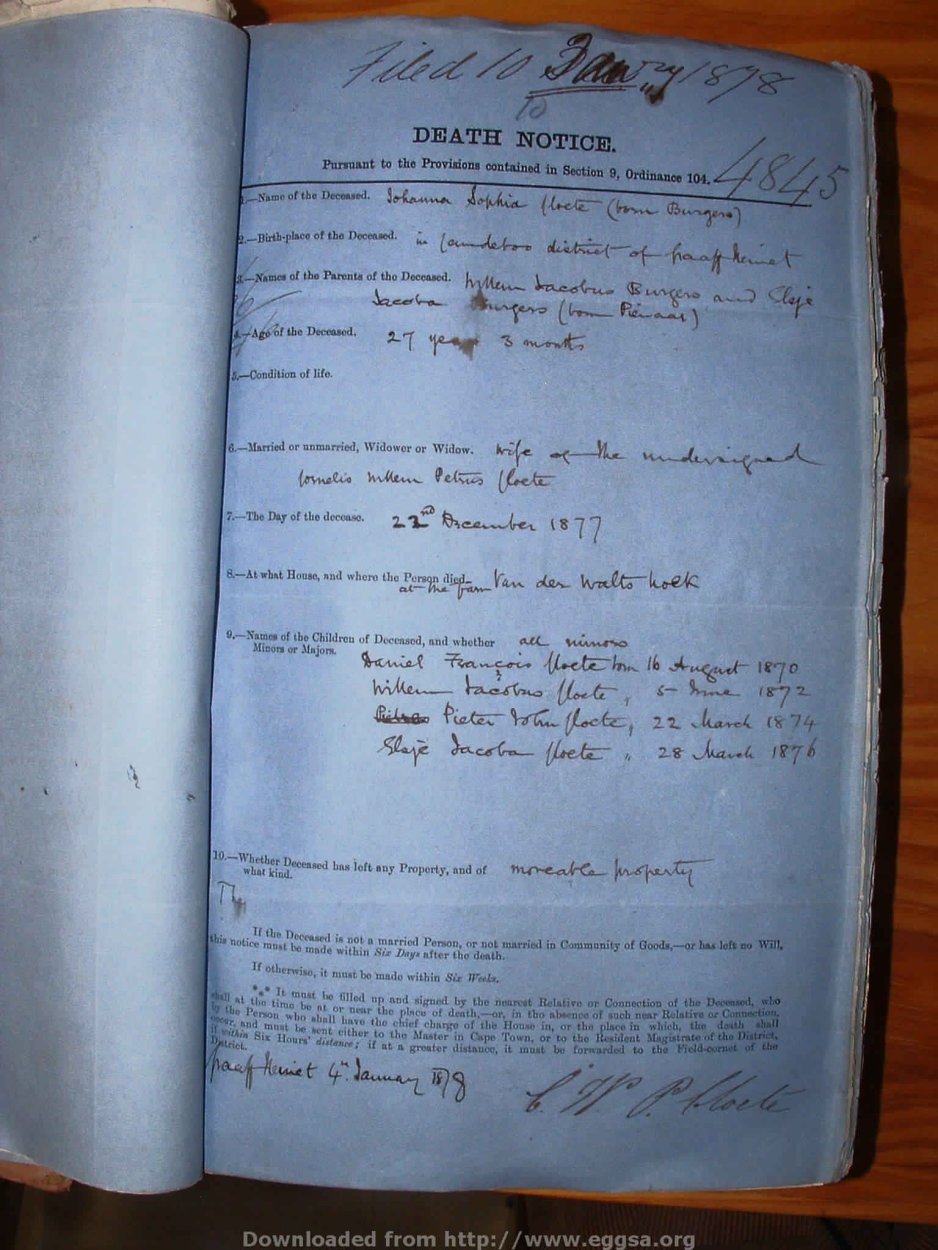 Filed 10 Jan'ry 1878
10
DEATH NOTICE.
Pursuant to the Provisions contained in Section 9, Ordinance 104.
4845
1.—Name of the Deceased. Johanna Sophia Cloete (born Burgers)
2.—Birth-place of the Deceased. in Camdeboo district of Graaff Reinet
3.—Names of the Parents of the Deceased. Willem Jacobus Burgers and Elsje
Jacoba Burgers (born Pienaar)
4.—Age of the Deceased. 27 years 3 months
5.—Condition of life.
6.—Married or unmarried, Widower or Widow. wife of the undersigned
Cornelis Willem Petrus Cloete
7.—The Day of the decease. 22nd December 1877
8.—At what House, and where the Person died
at the farm Van der Walts hoek
9.—Names of the Children of Deceased, and whether all minors
Minors or Majors.
Daniel François Cloete born 16 August 1870
Willem Jacobus Cloete " 5 June 1872
Pieter John Cloete, 22 March 1874
Elsje Jacoba Cloete " 28 March 1876
10.—Whether Deceased has left any Property, and of moveable property
what kind.
Th
If the Deceased is not a married Person, or not married in Community of Goods,—or has left no Will,
this notice must be made within Six Days after the death.
If otherwise, it must be made within Six Weeks.
*** It must be filled up and signed by the nearest Relative or Connection of the Deceased, who
shall at the time be at or near the place of death,—or, in the absence of such near Relative or Connection,
by the Person who shall have the chief charge of the House in, or the place in which, the death shall
occur, and must be sent either to the Master in Cape Town, or to the Resident Magistrate of the District,
if within Six Hours' distance; if at a greater distance, it must be forwarded to the Field-cornet of the
District.
Graaff Reinet 4th January 1878
C. W. P. Cloete
Downloaded from http://www.eggsa.org